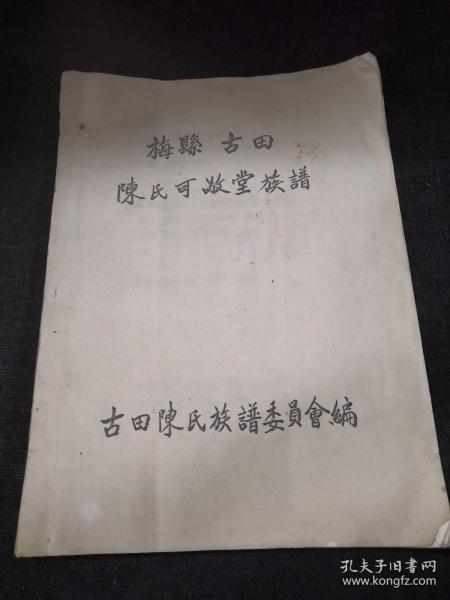 梅縣 古田
陳氏可敬堂族譜
古田陳氏族譜委員會編
孔夫子旧书网
www.kongfz.com